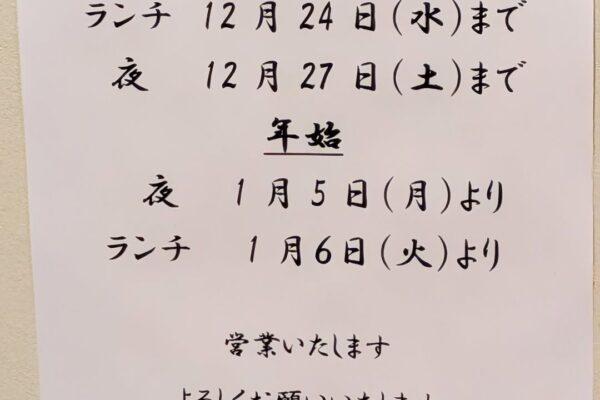 ランチ 12月24日(水)まで
夜 12月27日(土)まで
年始
夜 1月5日(月)より
ランチ 1月6日(火)より
営業いたします
よろしくお願いいたします